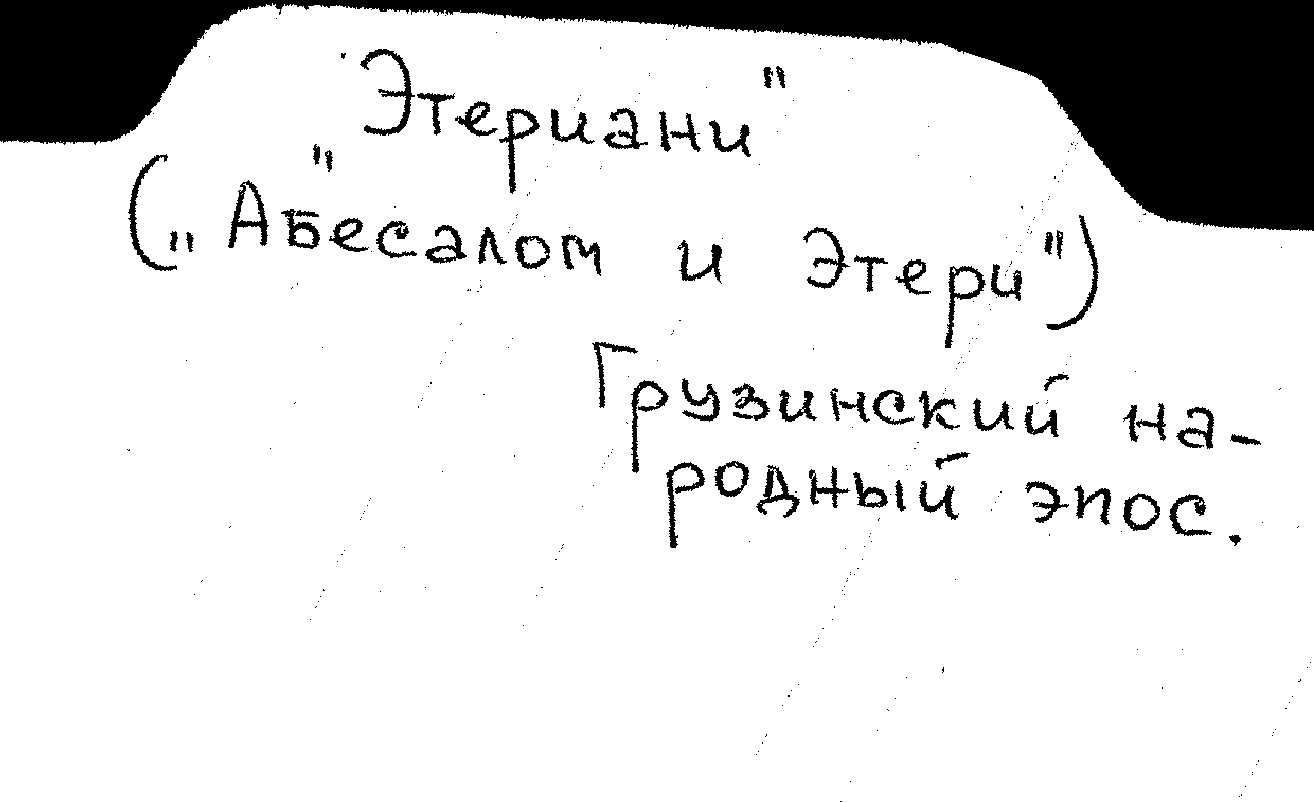 „Этериани"
(„Абесалом и Этери")
Грузинский на-
родный эпос.